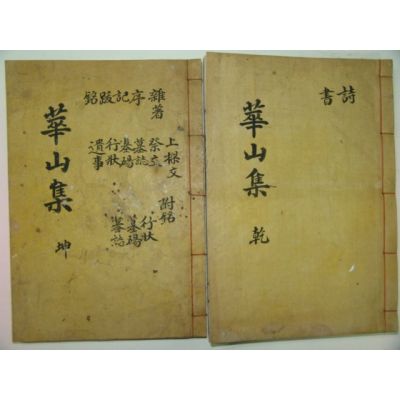 詩
書
華山集
乾
雜著
序
記
跋
銘
上樑文
祭文
墓誌
墓碣
行狀
遺事
附銘
行狀
墓碣
墓誌
華山集
坤